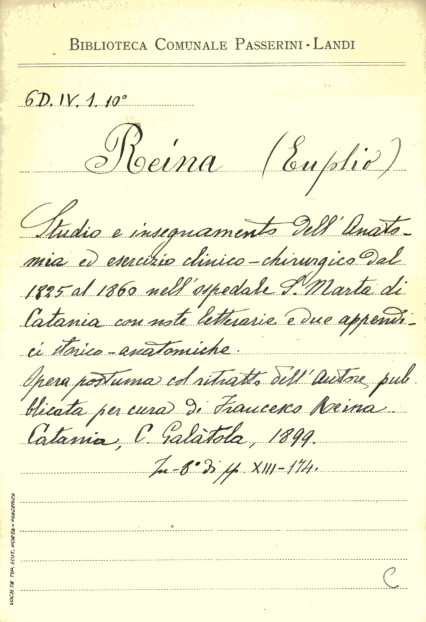 BIBLIOTECA COMUNALE PASSERINI-LANDI
6D. IV. 1. 10°
Reina (Euplio)
Studio e insegnamento dell'Anato-
mia ed esercizio clinico-chirurgico dal
1825 al 1860 nell'ospedale S. Marta di
Catania con note letterarie e due appendi-
ci storico-anatomiche.
Opera postuma col ritratto dell'Autore pub-
blicata per cura di Francesco Reina.
Catania, C. Galàtola, 1899.
In-8° di pp. XIII-174.
C